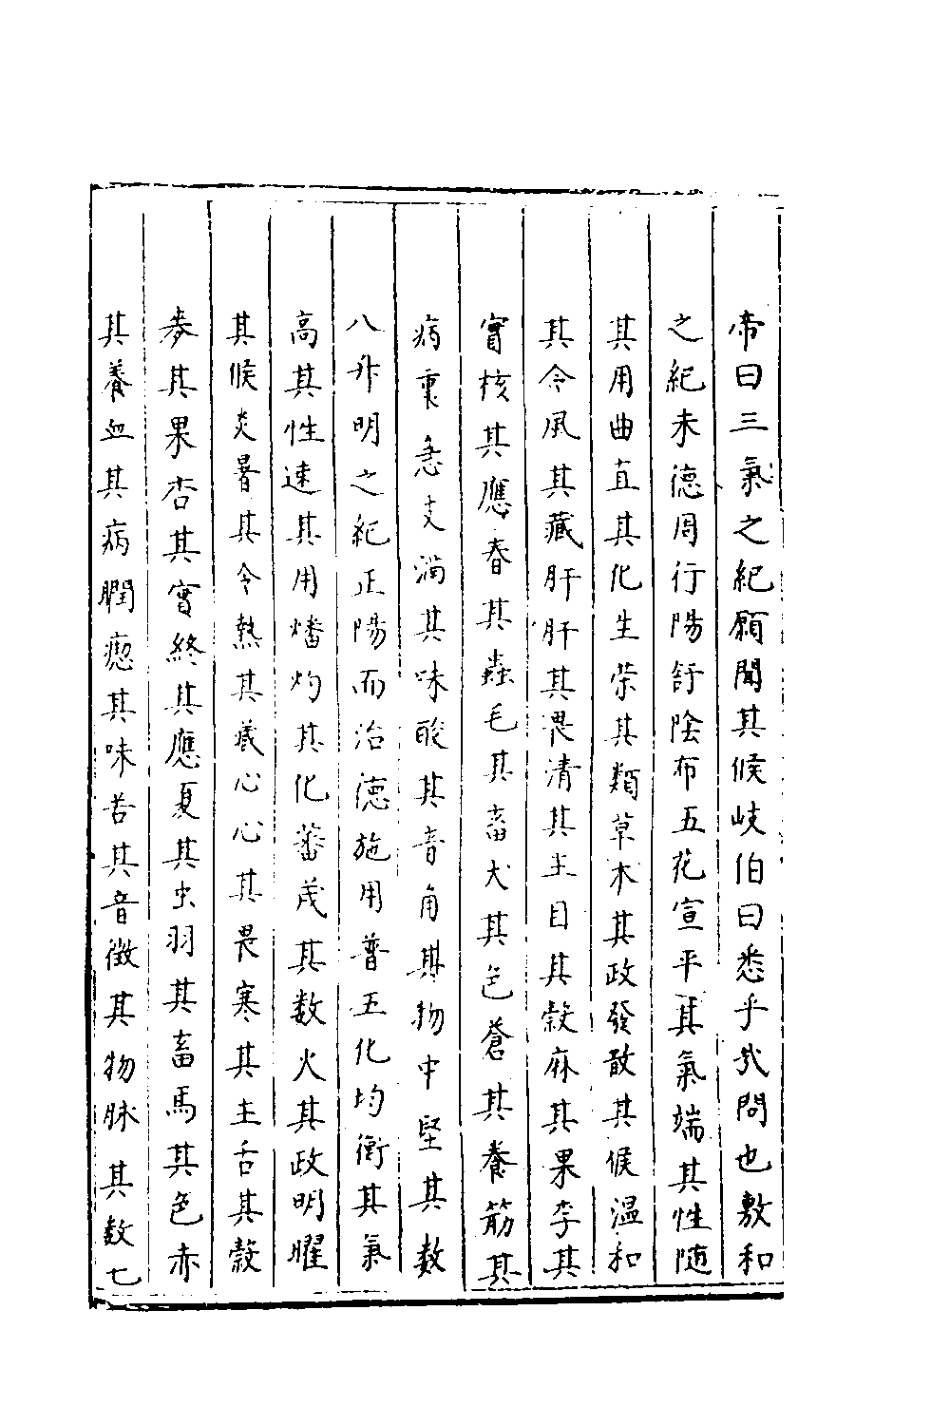 帝曰三氣之紀願聞其候岐伯曰悉乎哉問也敷和
之紀木德周行陽舒陰布五花宣平其氣端其性隨
其用曲直其化生荣其類草木其政發散其候温和
其令風其藏肝肝其畏清其主目其穀麻其果李其
實核其應春其蟲毛其畜犬其色蒼其養筋其
病裏急支滿其味酸其音角其物中堅其数
八升明之紀正陽而治德施用普五化均衡其氣
高其性速其用燔灼其化蕃茂其数火其政明曜
其候炎暑其令熱其藏心心其畏寒其主舌其穀
麥其果杏其實終其應夏其虫羽其畜馬其色赤
其養血其病瞤瘛其味苦其音徴其物脉其数七